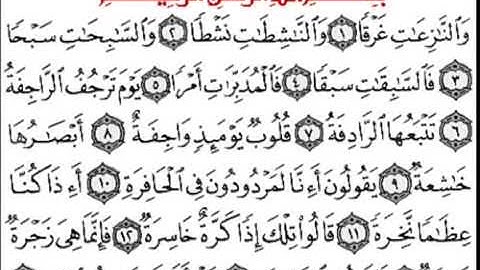 وَٱلنَّٰزِعَٰتِ غَرْقًا ١ وَٱلنَّٰشِطَٰتِ نَشْطًا ٢ وَٱلسَّٰبِحَٰتِ سَبْحًا
٣ فَٱلسَّٰبِقَٰتِ سَبْقًا ٤ فَٱلْمُدَبِّرَٰتِ أَمْرًا ٥ يَوْمَ تَرْجُفُ ٱلرَّاجِفَةُ
٦ تَتْبَعُهَا ٱلرَّادِفَةُ ٧ قُلُوبٌ يَوْمَئِذٍ وَاجِفَةٌ ٨ أَبْصَٰرُهَا
خَٰشِعَةٌ ٩ يَقُولُونَ أَءِنَّا لَمَرْدُودُونَ فِى ٱلْحَافِرَةِ ١٠ أَءِذَا كُنَّا
عِظَٰمًا نَّخِرَةً ١١ قَالُوا۟ تِلْكَ إِذًا كَرَّةٌ خَاسِرَةٌ ١٢ فَإِنَّمَا هِىَ زَجْرَةٌ